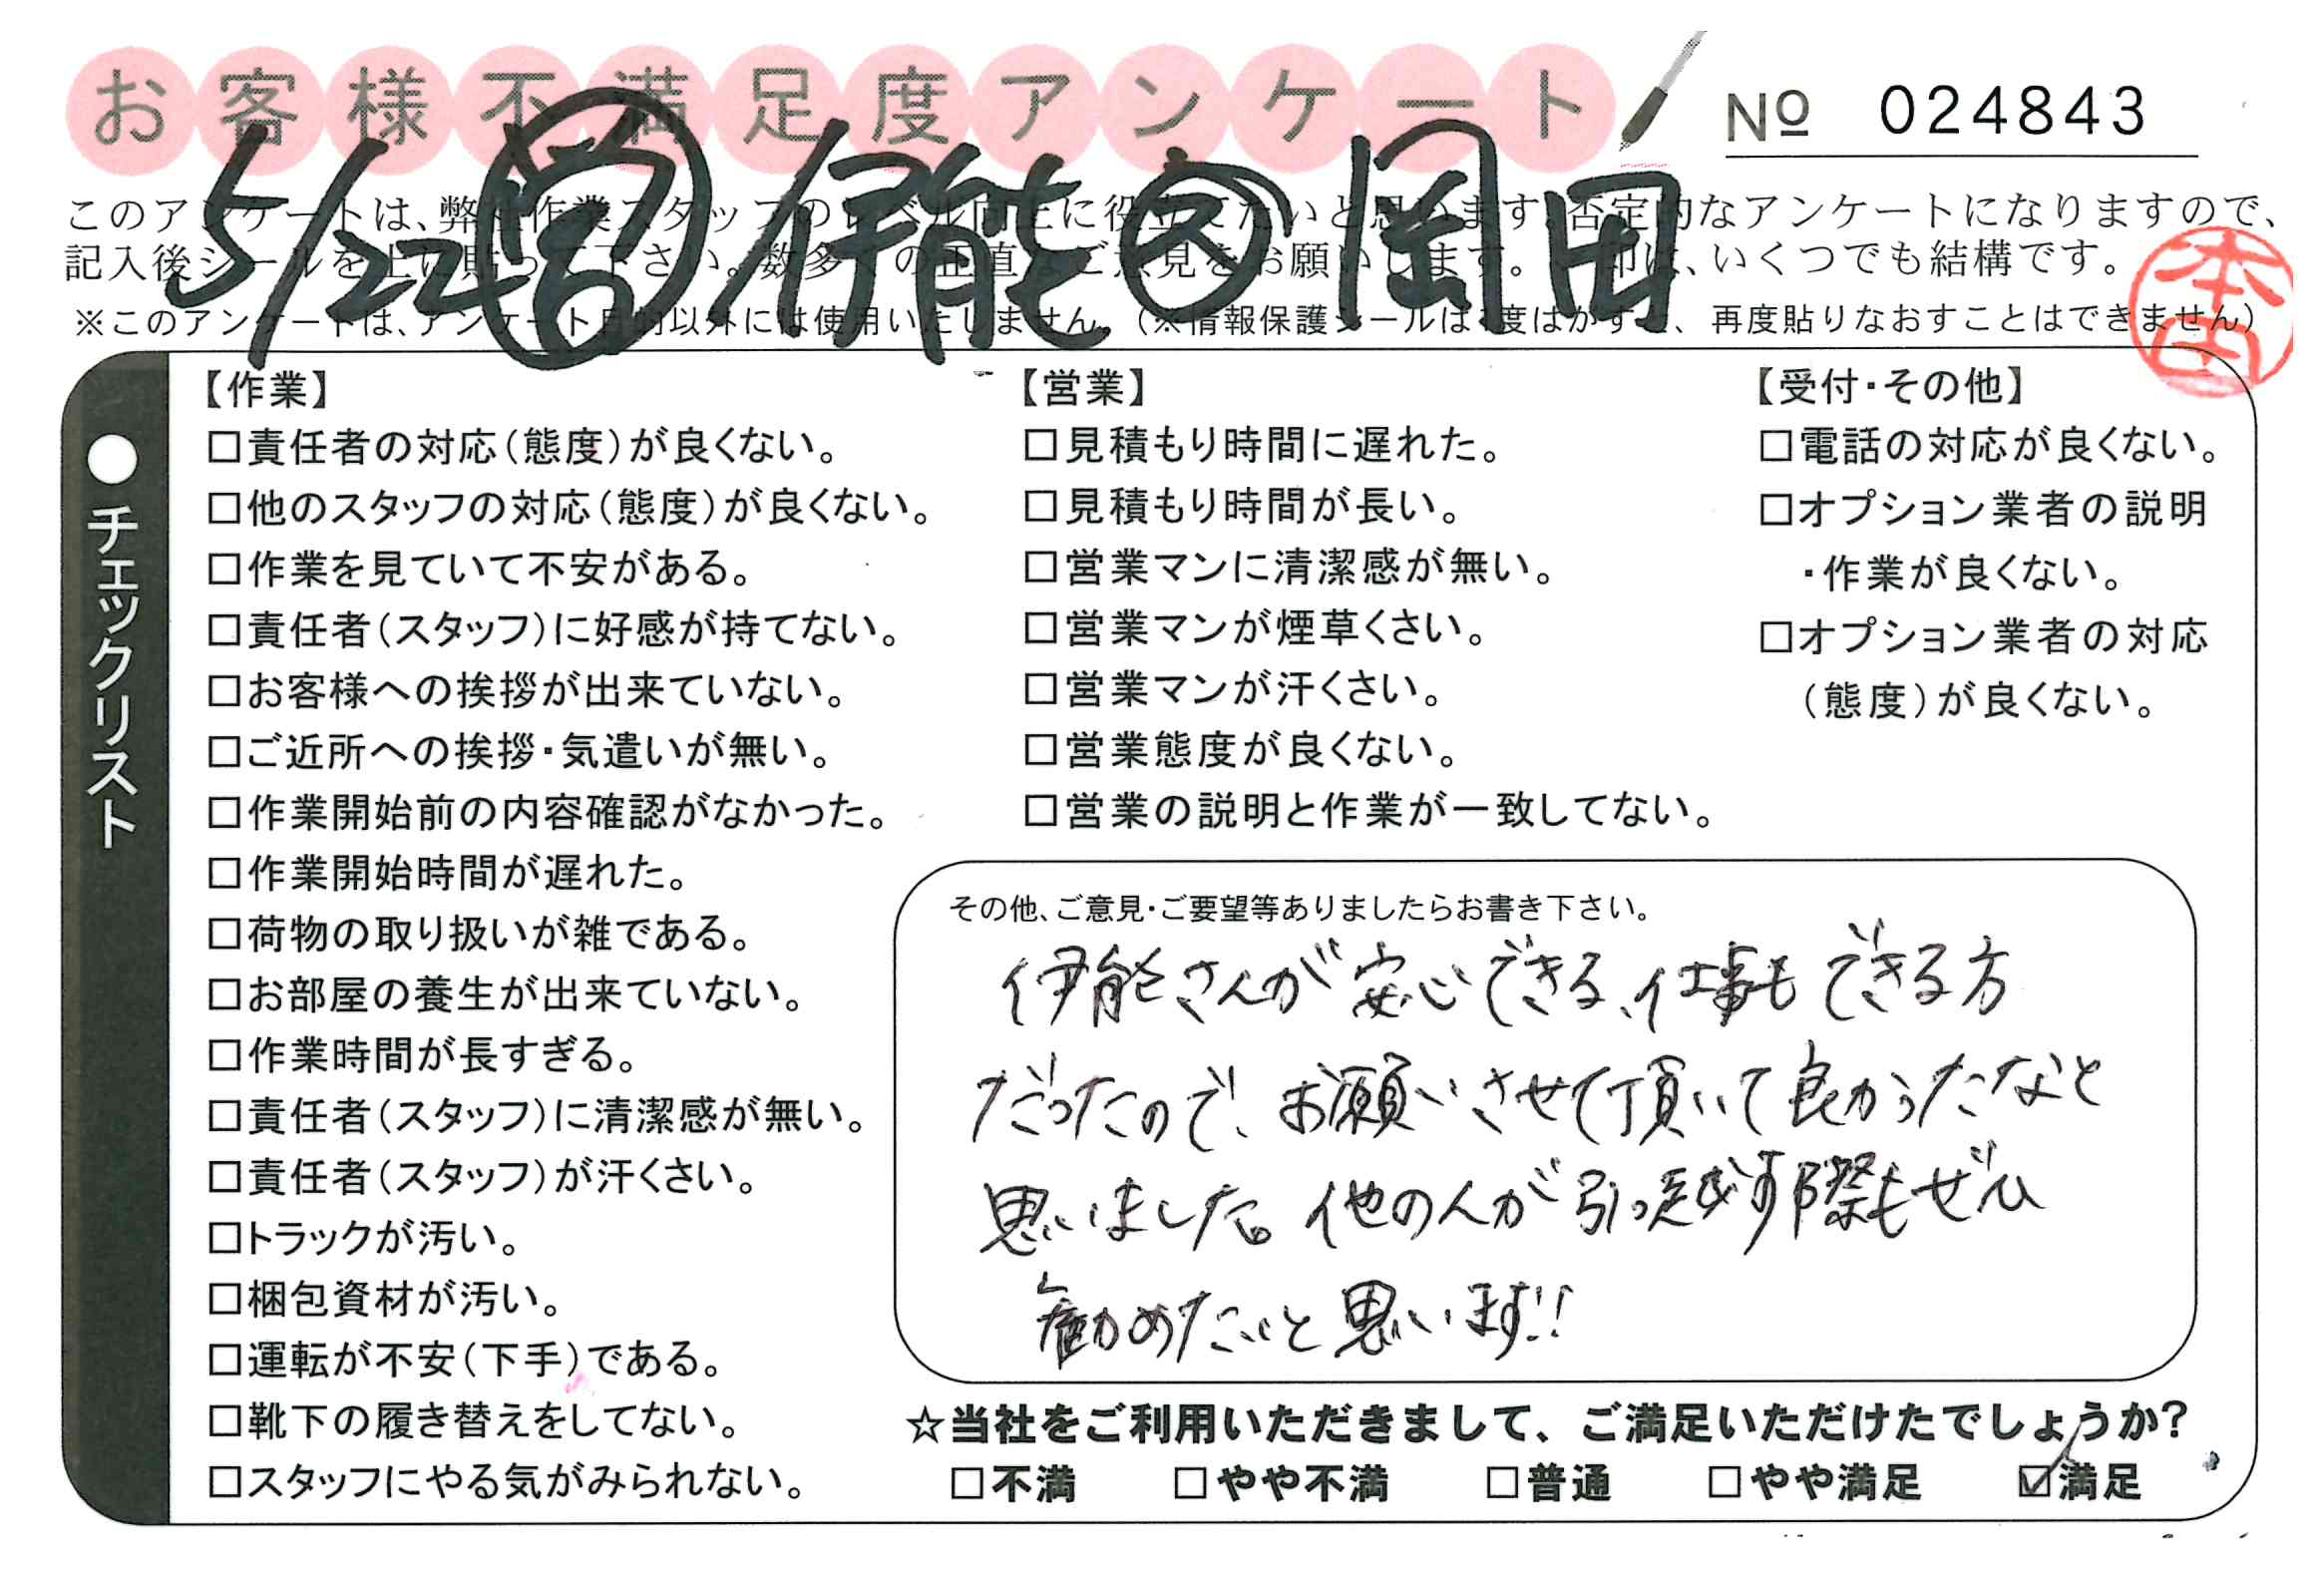 お客様不満足度アンケート
No 024843
5/22 営 伊能 文 岡田
このアンケートは、弊社作業スタッフのレベル向上に役立てたいと思います。否定的なアンケートになりますので、
記入後シールを上に貼って下さい。数多くの正直なご意見をお願いします。 印は、いくつでも結構です。
※このアンケートは、アンケート目的以外には使用いたしません。(※情報保護シールは1度はがすと、再度貼りなおすことはできません)
本田
●チェックリスト
【作業】
□責任者の対応(態度)が良くない。
□他のスタッフの対応(態度)が良くない。
□作業を見ていて不安がある。
□責任者(スタッフ)に好感が持てない。
□お客様への挨拶が出来ていない。
□ご近所への挨拶・気遣いが無い。
□作業開始前の内容確認がなかった。
□作業開始時間が遅れた。
□荷物の取り扱いが雑である。
□お部屋の養生が出来ていない。
□作業時間が長すぎる。
□責任者(スタッフ)に清潔感が無い。
□責任者(スタッフ)が汗くさい。
□トラックが汚い。
□梱包資材が汚い。
□運転が不安(下手)である。
□靴下の履き替えをしてない。
□スタッフにやる気がみられない。
【営業】
□見積もり時間に遅れた。
□見積もり時間が長い。
□営業マンに清潔感が無い。
□営業マンが煙草くさい。
□営業マンが汗くさい。
□営業態度が良くない。
□営業の説明と作業が一致してない。
【受付・その他】
□電話の対応が良くない。
□オプション業者の説明
・作業が良くない。
□オプション業者の対応
(態度)が良くない。
その他、ご意見・ご要望等ありましたらお書き下さい。
伊能さんが安心できる、仕事もできる方
だったので、お願いさせて頂いて良かったなと
思いました。他の人が引っ越す際もぜひ
勧めたいと思います!!
☆当社をご利用いただきまして、ご満足いただけたでしょうか?
□不満 □やや不満 □普通 □やや満足 ☑満足